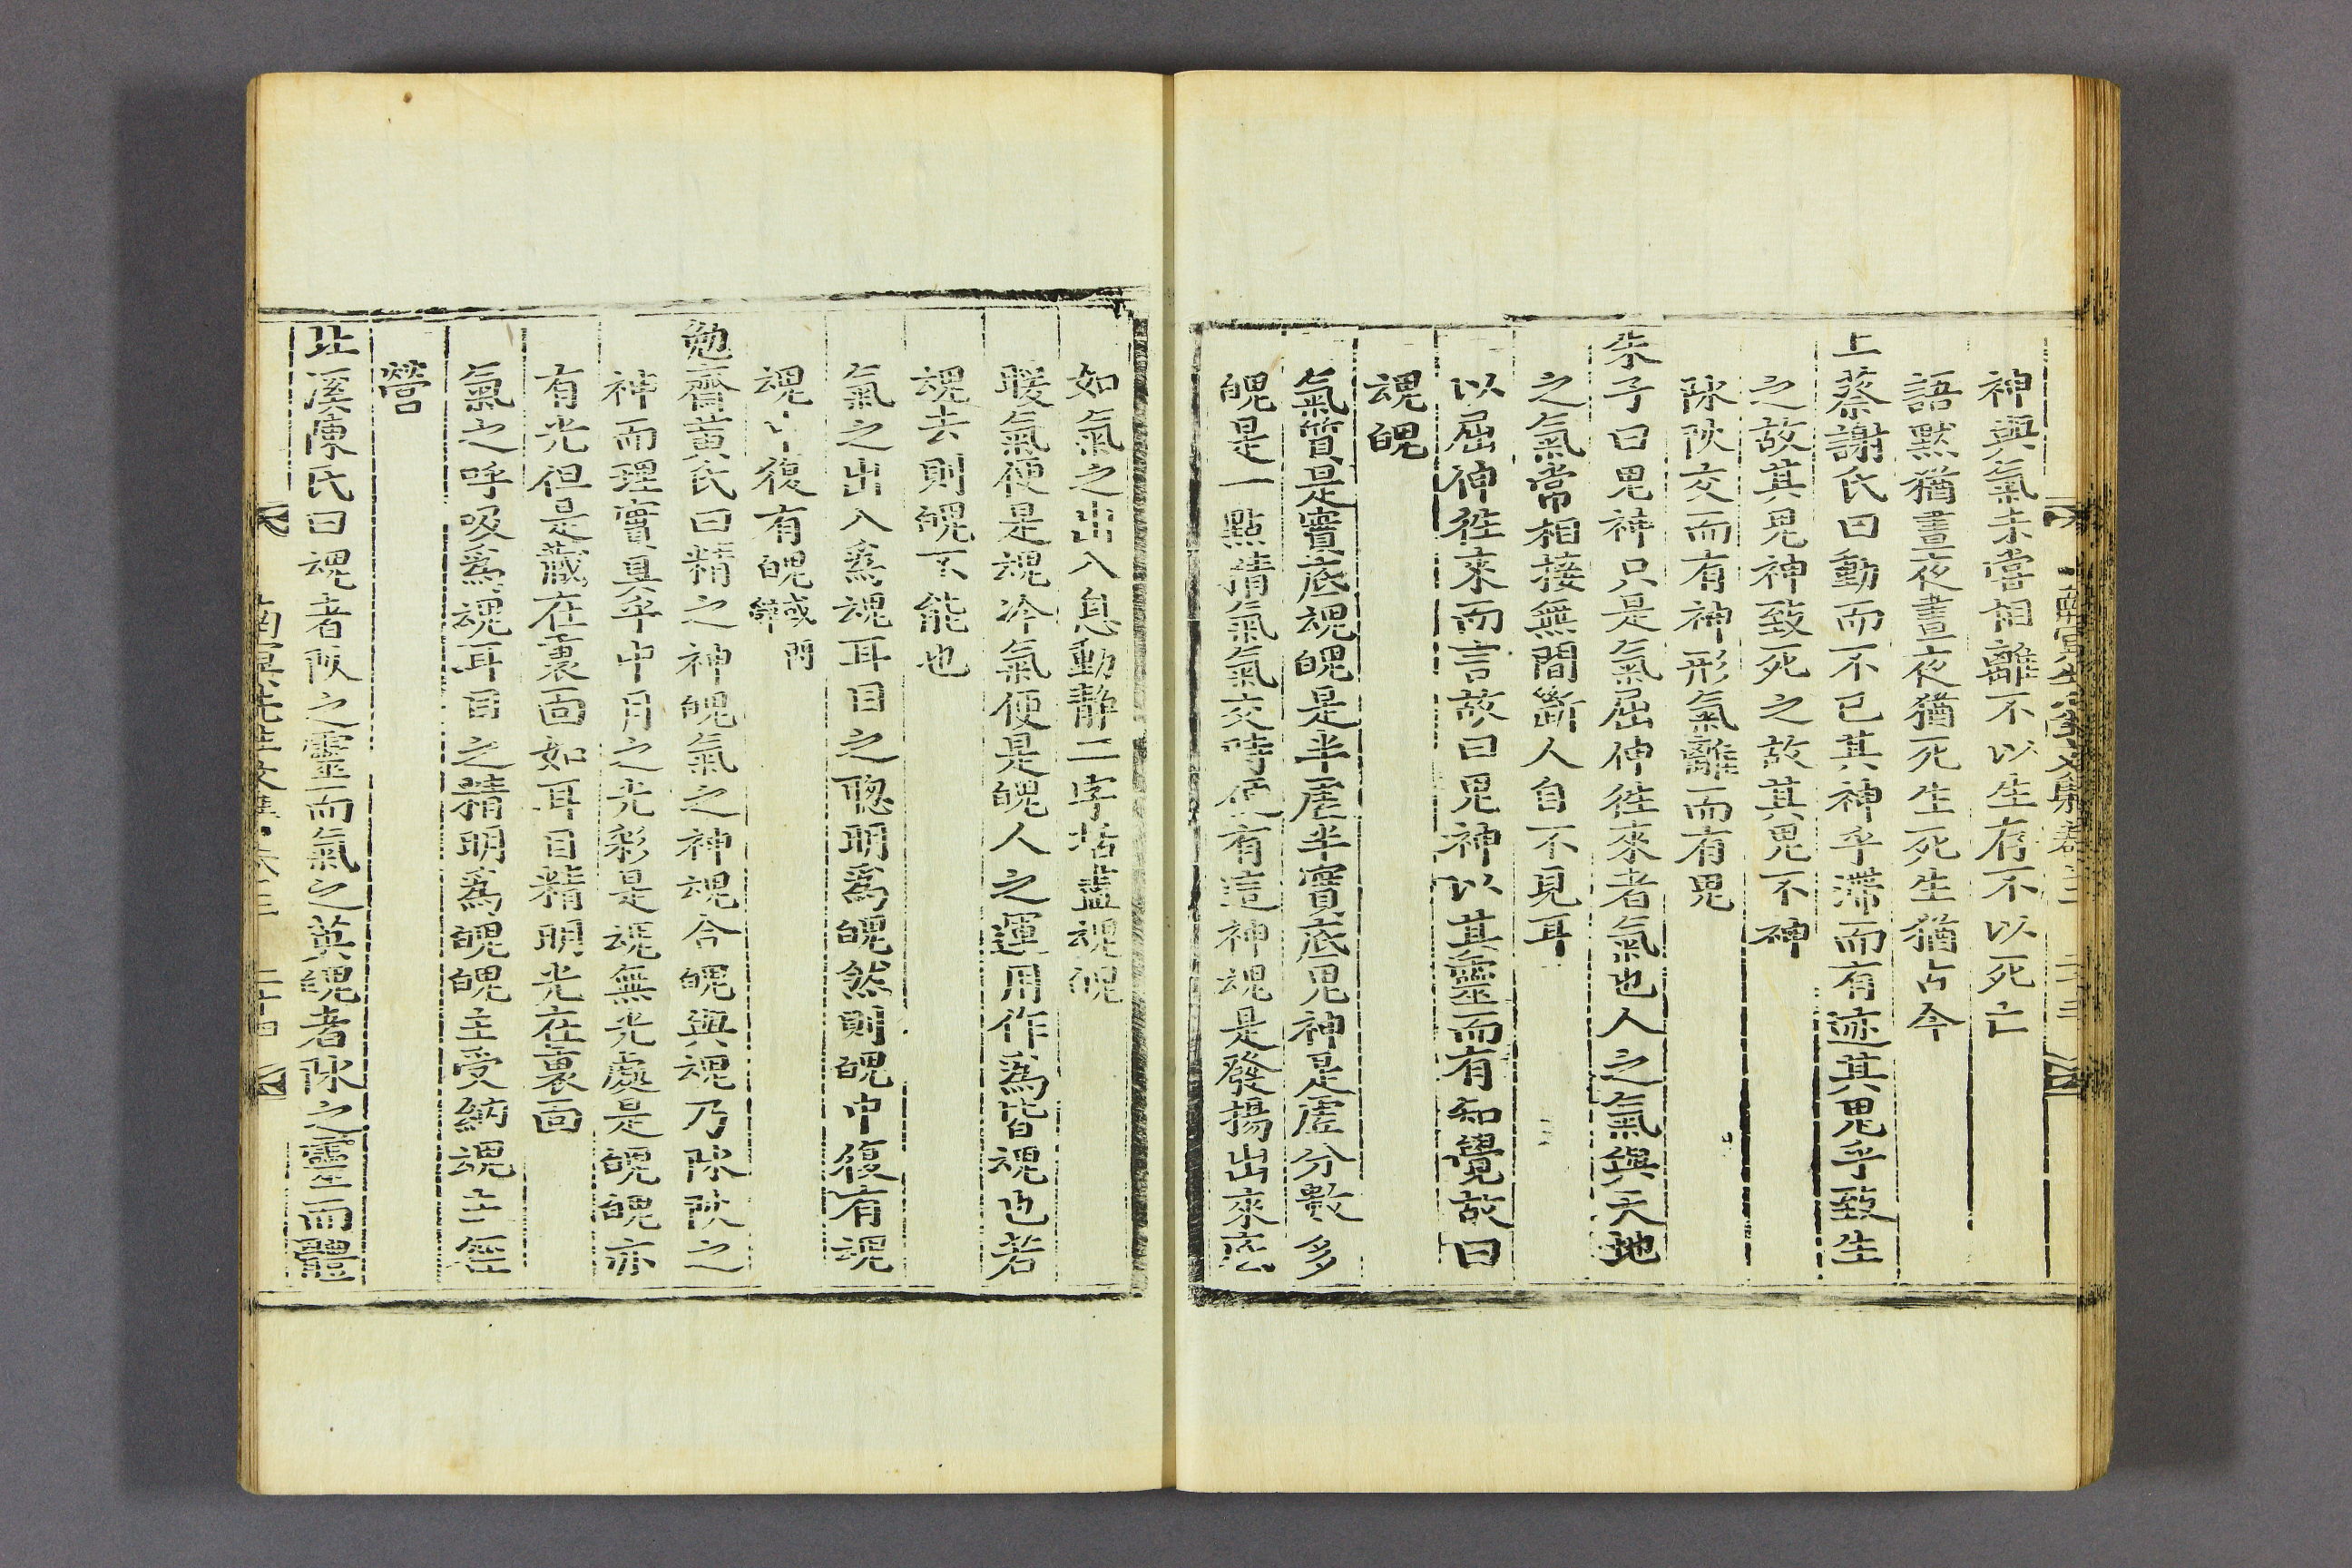 神與氣未嘗相離不以生存不以死亡
語默猶晝夜晝夜猶死生死生猶古今
上蔡謝氏曰動而不已其神乎滯而有迹其鬼乎致生
之故其鬼神致死之故其鬼不神
陰陽交而有神形氣離而有鬼
朱子曰鬼神只是氣屈伸徃來者氣也人之氣與天地
之氣常相接無間斷人自不見耳
以屈伸徃來而言故曰鬼神以其靈而有知覺故曰
魂魄
氣質是實底魂魄是半虛半實底鬼神是虛分數多
魄是一點精氣氣交時便有這神魂是發揚出來底
如氣之出入息動靜二字括盡魂魄
暖氣便是魂冷氣便是魄人之運用作爲皆魂也若
魂去則魄不能也
氣之出入爲魂耳目之聰明爲魄然則魄中復有魂
魂中復有魄
勉齋黃氏曰精之神魄氣之神魂合魄與魂乃陰陽之
神而理實具乎中月之光彩是魂無光處是魄魄亦
有光但是藏在裏面如耳目精明光在裏面
氣之呼吸爲魂耳目之精明爲魄魄主受納魂主經
營
北溪陳氏曰魂者陽之靈而氣之英魄者陰之靈而體